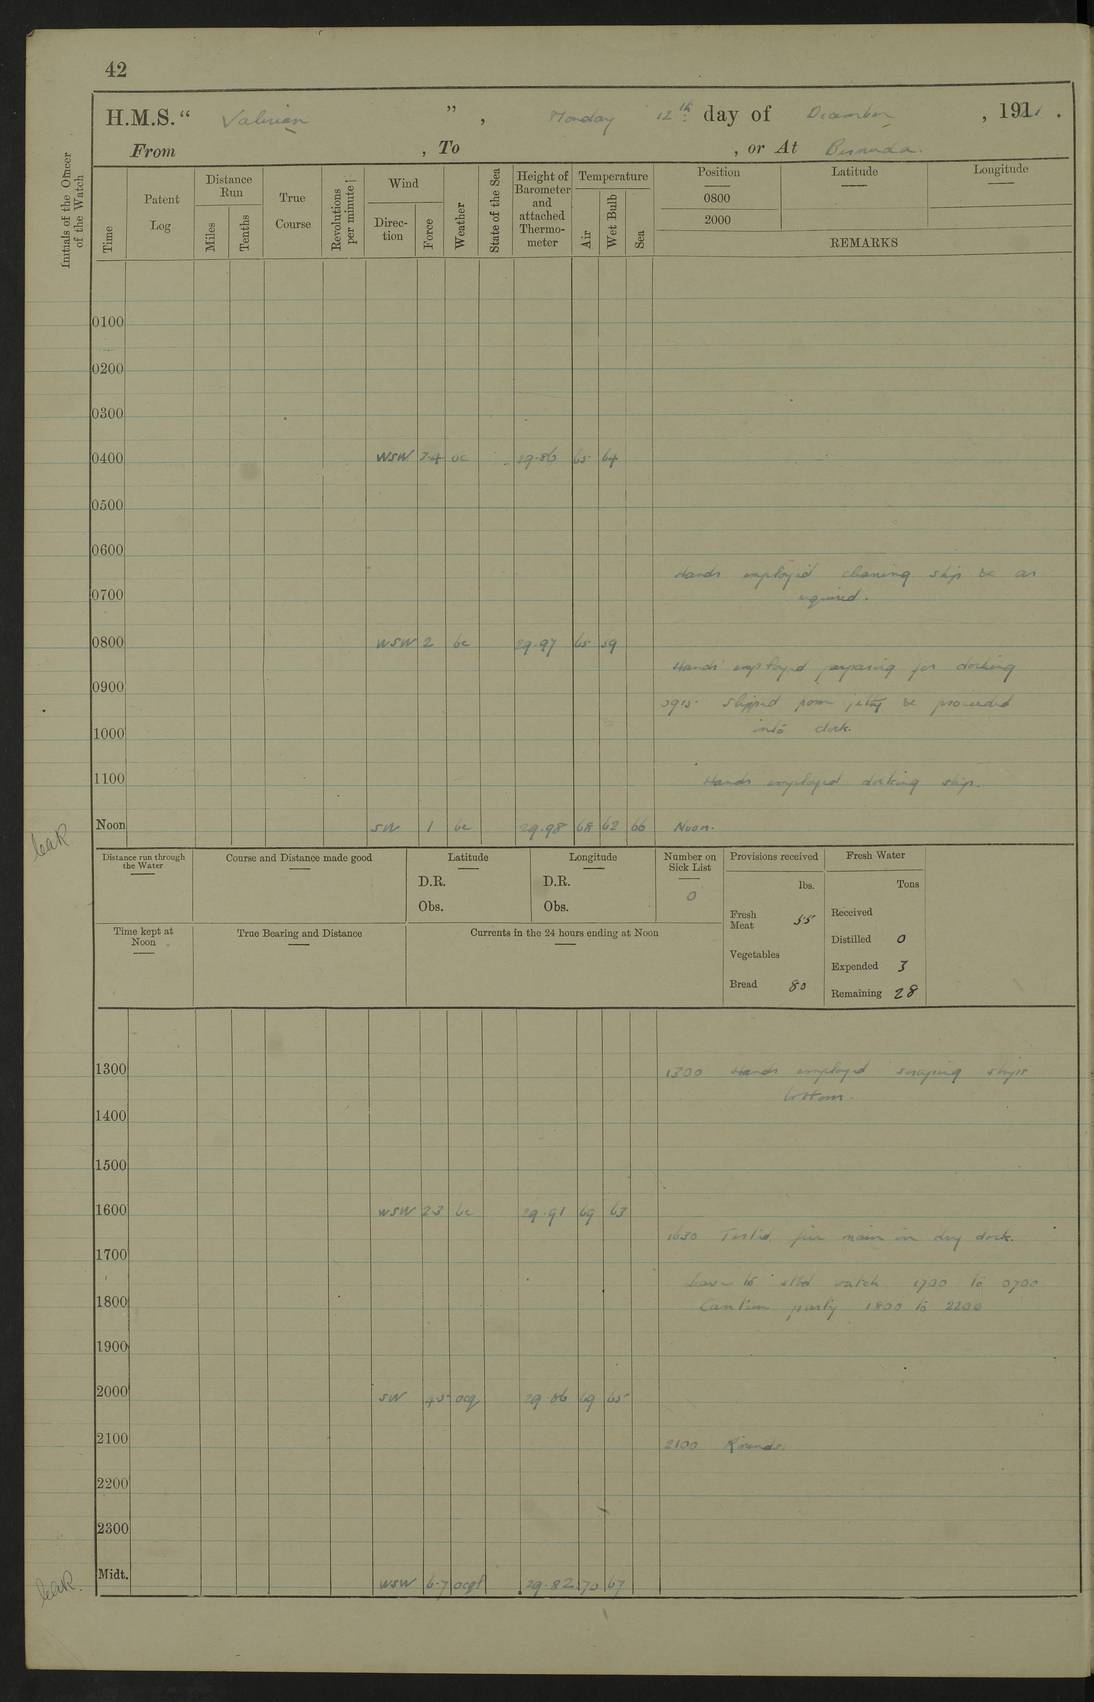 42
H.M.S. "Valerian", Monday 12th day of December, 1921.
From , To , or At Bermuda.
Initials of the Officer of the Watch
Time
Patent Log
Distance Run
Miles
Tenths
True Course
Revolutions per minute
Wind
Direction
Force
Weather
State of the Sea
Height of Barometer and attached Thermometer
Temperature
Air
Wet Bulb
Sea
Position
0800
2000
Latitude
Longitude
REMARKS
0100
0200
0300
0400 WSW 3-4 oc 29.86 65 64
0500
0600
Hands employed cleaning ship &c as
0700 required.
0800 WSW 2 bc 29.97 65 59
Hands employed preparing for docking
0900
0915. Slipped from jetty & proceeded
1000 into dock.
1100 Hands employed docking ship.
Noon SW 1 bc 29.98 68 62 66 Noon.
Distance run through the Water
Course and Distance made good
Latitude
D.R.
Obs.
Longitude
D.R.
Obs.
Number on Sick List
0
Provisions received
lbs.
Fresh Meat 55
Vegetables
Bread 80
Fresh Water
Tons
Received
Distilled 0
Expended 3
Remaining 28
Time kept at Noon
True Bearing and Distance
Currents in the 24 hours ending at Noon
1300 1300 Hands employed scraping ships
bottom.
1400
1500
1600 WSW 2-3 bc 29.91 69 63
1630 Tested fire main in dry dock.
1700
Leave to stbd watch 1700 to 0700
1800 Canteen party 1800 to 2200
1900
2000 SW 4-5 ocq 29.86 69 65
2100 2100 Rounds.
2200
2300
Midt. WSW 6-7 29.82 70 67